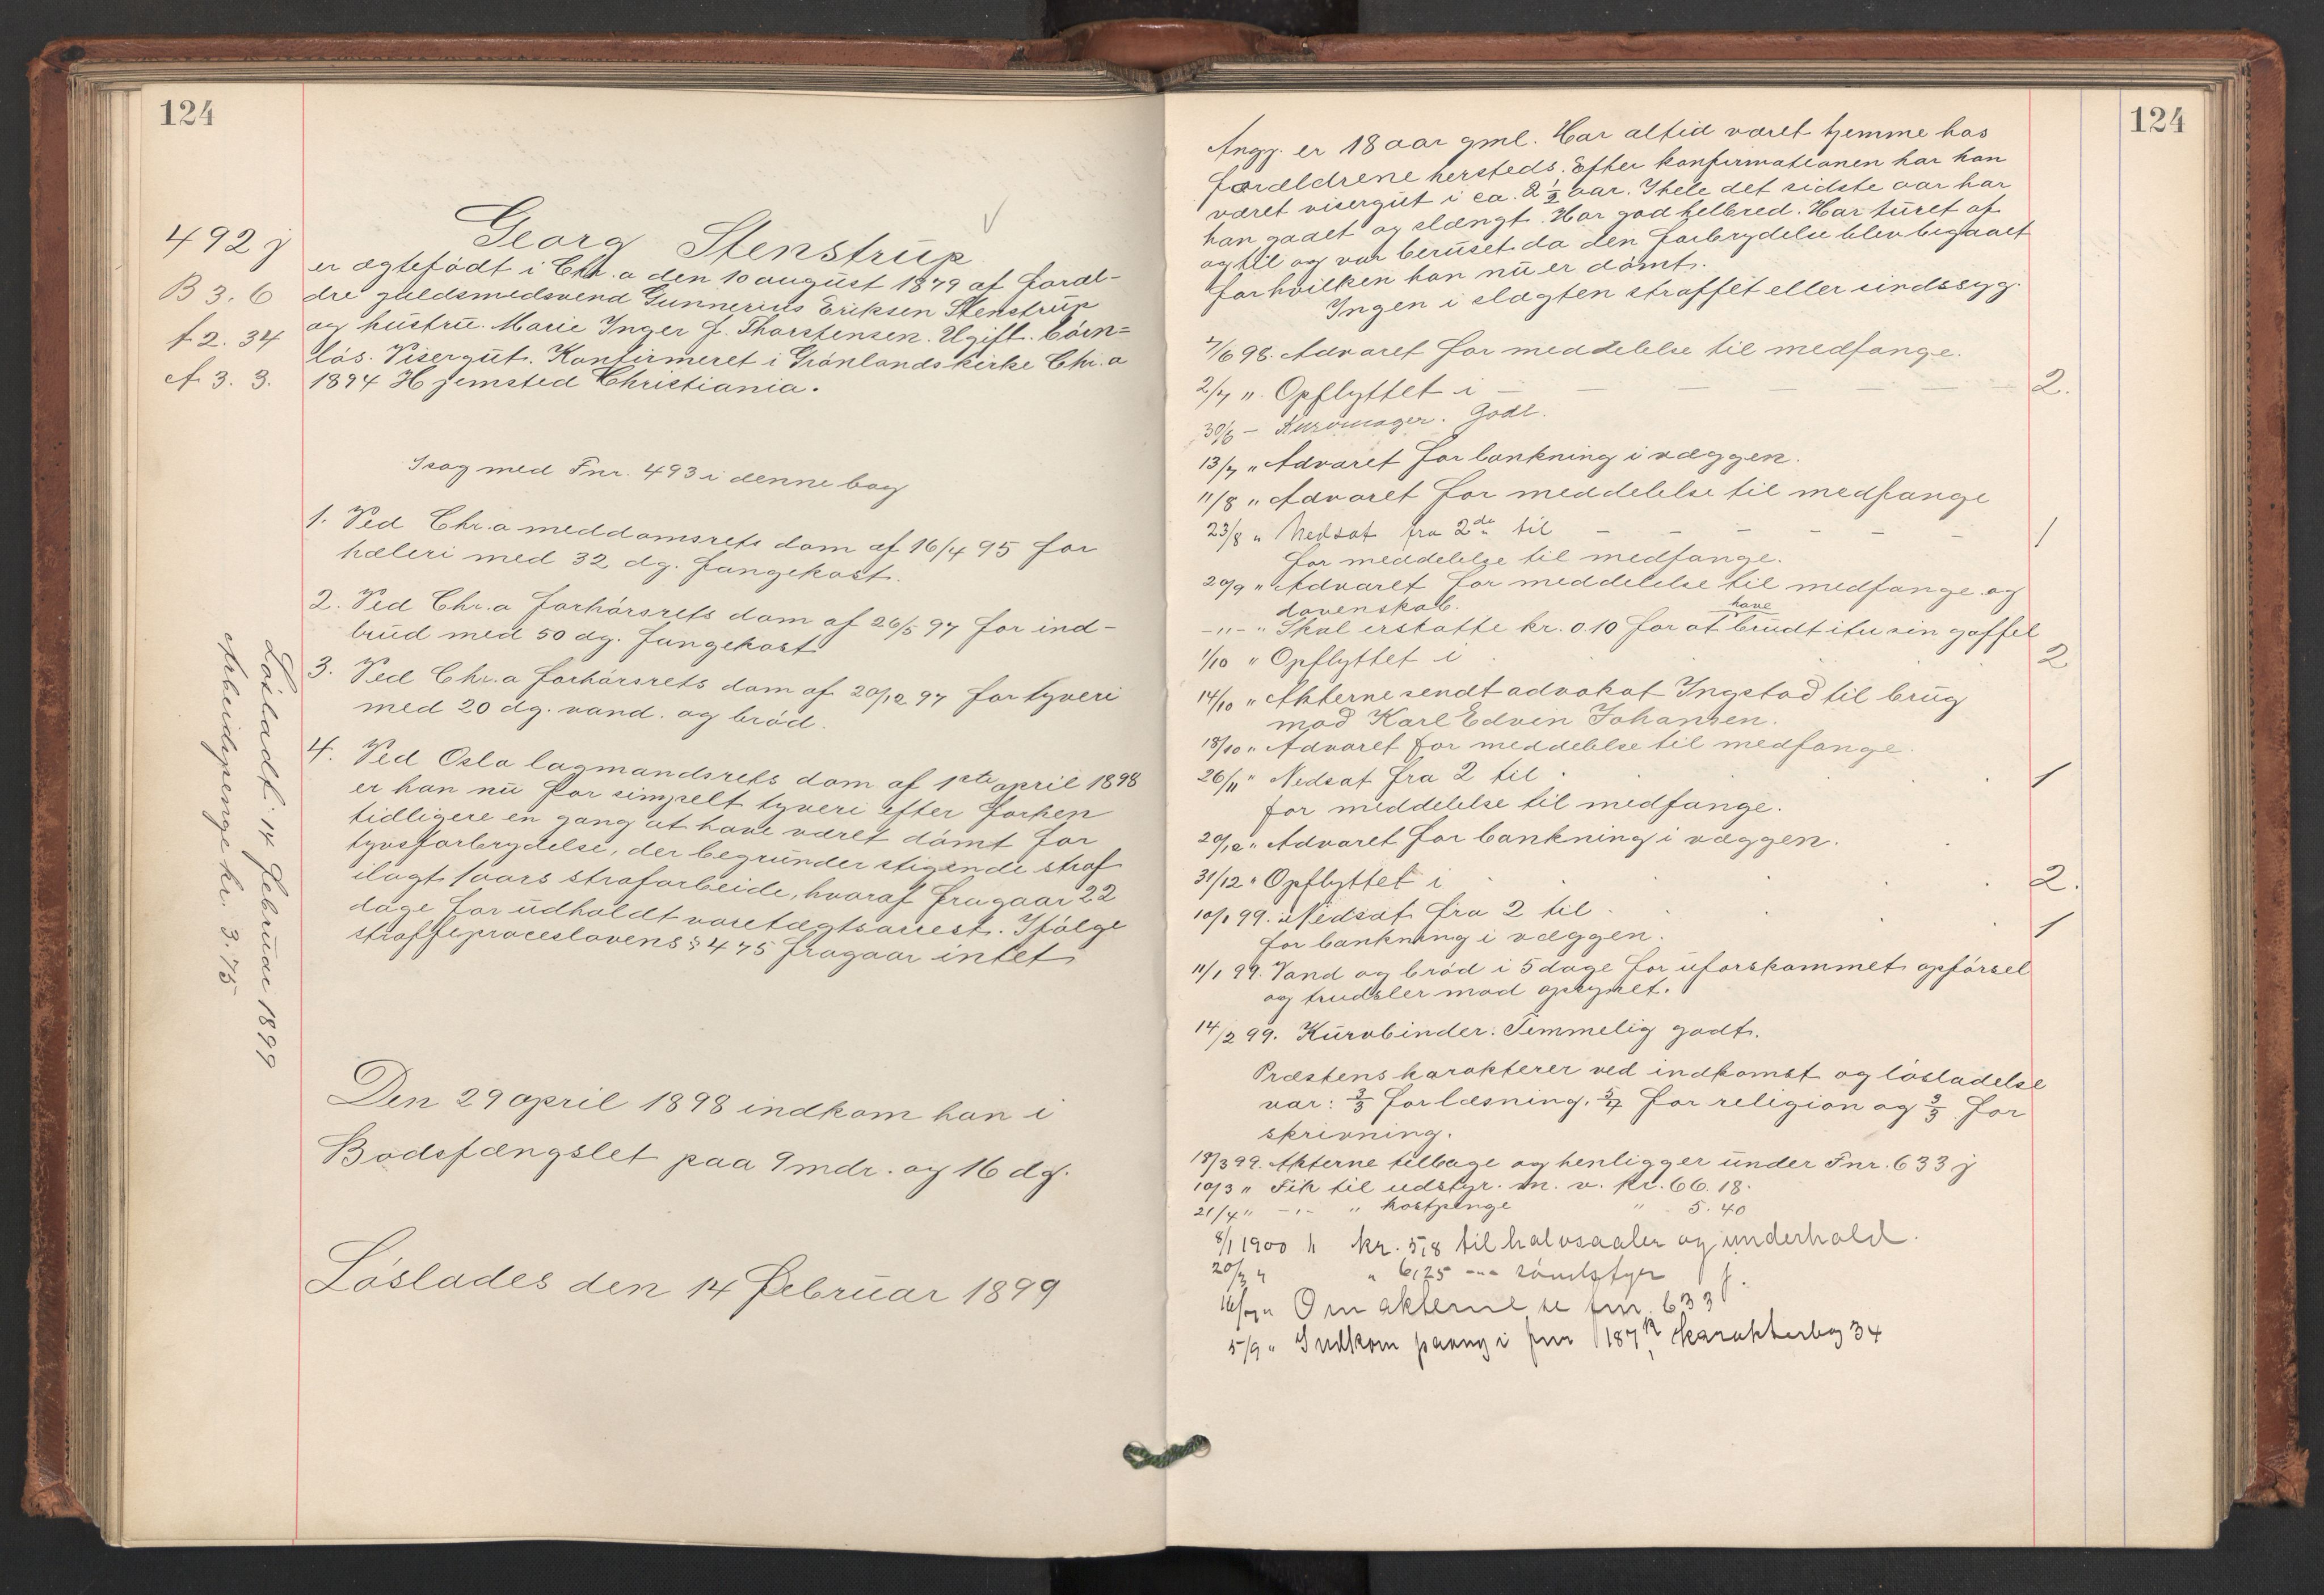 124
492 j
B 3. 6
A 2. 34
A 3. 3.
Georg Stenstrup
er ægtefødt i Chr.a den 10 august 1879 af foræl-
dre guldsmedsvend Gunnerius Eriksen Stenstrup
og hustru. Marie Inger f. Thorstensen. Ugift. børn=
løs. Visergut. Konfirmeret i Grønlandskirke Chr.a
1894 Hjemsted Christiania.
I sag med Fnr. 493 i denne bog
1. Ved Chr.a meddomsrets dom af 16/4 95 for
hæleri med 32 dg. fangekost.
2. Ved Chr.a forhørsrets dom af 26/5 97 for ind-
brud med 50 dg. fangekost
3. Ved Chr.a forhørsrets dom af 20/12 97 for tyveri
med 20 dg. vand. og brød.
4. Ved Oslo lagmandsrets dom af 1ste april 1898
er han nu for simpelt tyveri efter forhen
tidligere en gang at have været dømt for
tyvsforbrydelse, der begrunder stigende straf
ilagt 1 aars strafarbeide, hvoraf fragaar 22
dage for udholdt varetægtsarrest. Ifølge
straffeproceslovens § 475 fragaar intet
Løsladt: 14 februar 1899
Arbeidspenge kr. 3.75
Den 29 april 1898 indkom han i
Bodsfængslet paa 9 mdr. og 16 dg.
Løslades den 14 februar 1899
124
Angj. er 18 aar gml. Har altid været hjemme hos
forældrene hersteds. Efter konfirmationen har han
været visergut i ca. 2 1/2 aar. I hele det sidste aar har
han gaaet og slængt. Har god helbred. Har turet af
og til og var beruset da den forbrydelse blev begaaet
for hvilken han nu er dømt.
Ingen i slægten straffet eller sindssyg.
7/6 98. Advaret for meddelelse til medfange.
2/7 " Opflyttet i — — — — — 2.
30/6 — Kurvmager. Godt.
13/7 " Advaret for bankning i væggen.
11/8 " Advaret for meddelelse til medfange
23/8 " Nedsat fra 2de til — — — — — 1
for meddelelse til medfange.
20/9 " Advaret for meddelelse til medfange og
dovenskab.
—"— " Skal erstatte kr. 0.10 for at have brudt itu sin gaffel
1/10 " Opflyttet i 2
14/10 " Akterne sendt advokat Ingstad til brug
mod Karl Edvin Johansen.
18/10 " Advaret for meddelelse til medfange.
26/11 " Nedsat fra 2 til 1
for meddelelse til medfange.
20/12 " Advaret for bankning i væggen.
31/12 " Opflyttet i 2.
10/1 99. Nedsat fra 2 til 1
for bankning i væggen.
11/1 99. Vand og brød i 5 dage for uforskammet opførsel
og trudsler mod opsynet.
14/2 99. Kurvbinder. Temmelig godt.
Præstens karakterer ved indkomst og løsladelse
var: 3/3 for læsning, 5/4 for religion og 3/3 for
skrivning.
18/3 99. Akterne tilbage og henligger under Fnr. 633 j
10/3 " Fik til udstyr. m. v. kr. 66. 18.
21/4 " —"— " kostpenge " 5. 40
8/1 1900 " kr. 5,8 til halvsaaler og underhold.
20/3 " " 6,25 —"—
" Om akterne se fnr. 633 j.
5/9 " Indkom paany i fnr 187 k karakterbog 34